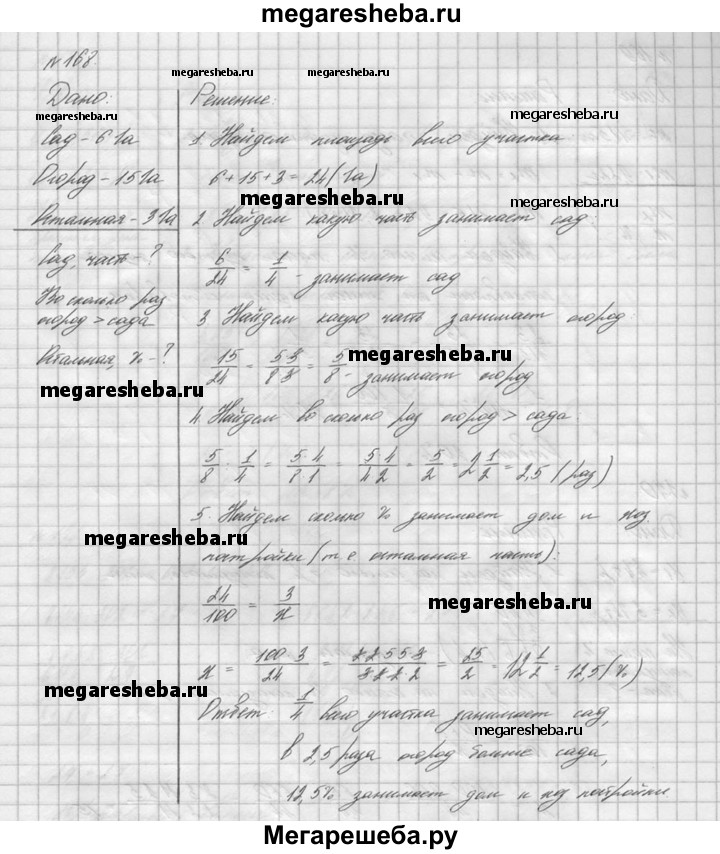 megaresheba.ru
№ 168.
megaresheba.ru
megaresheba.ru
Дано:
Сад - 6 га
Огород - 15 га
Остальная - 3 га
Сад, часть - ?
Во сколько раз
огород > сада
Остальная, % - ?
megaresheba.ru
megaresheba.ru
Решение:
1. Найдем площадь всего участка
6 + 15 + 3 = 24 (га)
megaresheba.ru
megaresheba.ru
2. Найдем какую часть занимает сад:
6/24 = 1/4 - занимает сад
3. Найдем какую часть занимает огород:
15/24 = 5·3/8·3 = 5/8 - занимает огород
megaresheba.ru
4. Найдем во сколько раз огород > сада:
5/8 : 1/4 = 5·4/8·1 = 5·4/4·2 = 5/2 = 2 1/2 = 2,5 (раз)
5. Найдем сколько % занимает дом и хоз.
megaresheba.ru
постройки (т.е. остальная часть):
24/100 = 3/x
megaresheba.ru
x = 100·3/24 = 2·2·5·5·3/3·2·2·2 = 25/2 = 12 1/2 = 12,5 (%)
megaresheba.ru
Ответ: 1/4 всего участка занимает сад,
megaresheba.ru
в 2,5 раза огород больше сада,
12,5% занимает дом и хоз постройки
Мегарешеба.ру